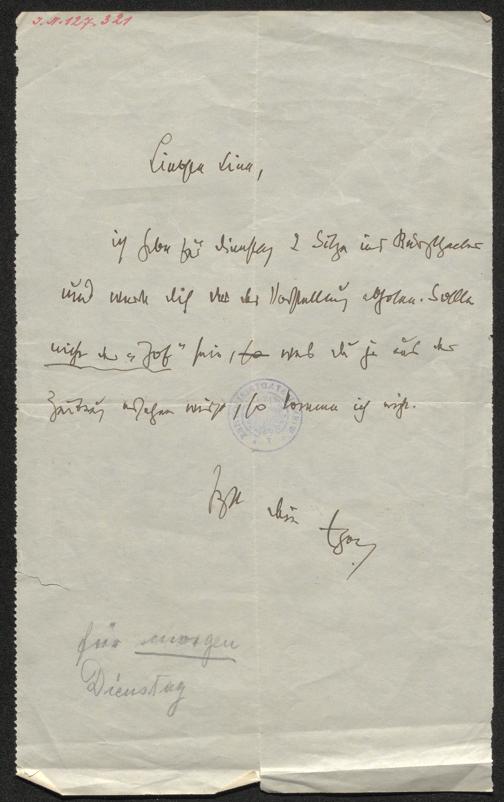 I.N. 127.321
Liebste Lina,
ich habe für Dienstag 2 Sitze ins Burgtheater
und werde dich vor der Vorstellung abholen. Sollte
nicht der „Tof" sein, so was du ja aus der
Zeitung ersehen wirst, so komme ich nicht.
dein Egon
für morgen
Dienstag